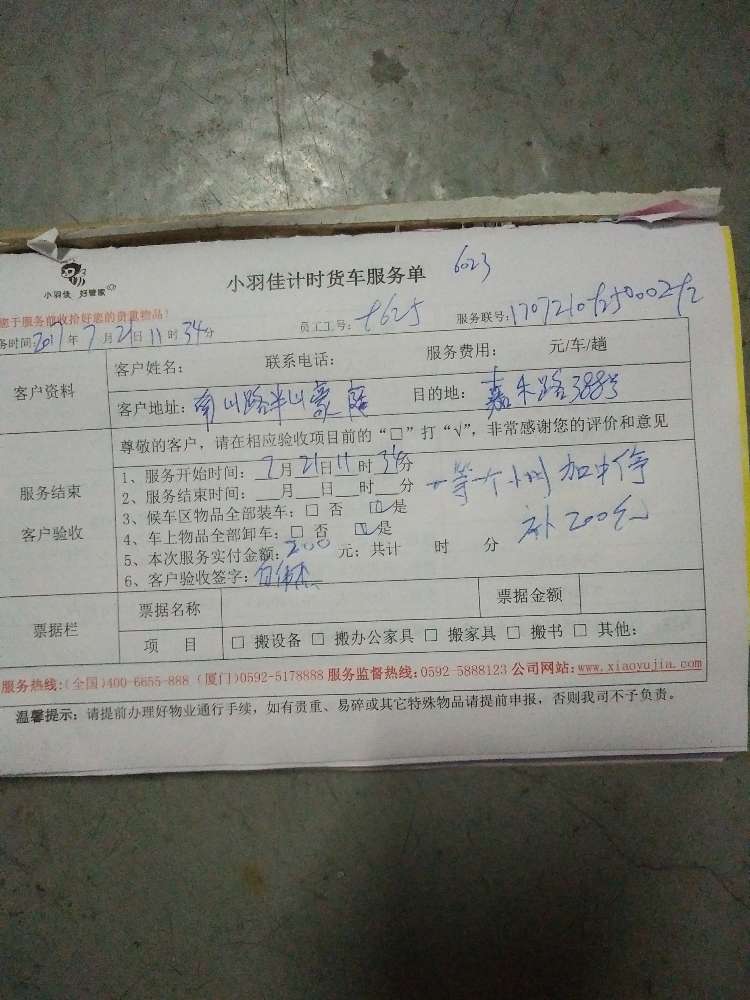 小羽佳 好管家
小羽佳计时货车服务单 6023
您于服务前收拾好您的贵重物品!
务时间2017年7月21日11时34分 员工工号: 服务联号:
客户资料 客户姓名: 联系电话: 服务费用: 元/车/趟
客户地址:南山路半山豪庭 目的地:嘉禾路388号
服务结束
客户验收
尊敬的客户，请在相应验收项目前的“□”打“√”，非常感谢您的评价和意见
1、服务开始时间: 7月21日11时34分
2、服务结束时间: __月__日__时__分
3、候车区物品全部装车: □ 否 ☑是
4、车上物品全部卸车: □ 否 ☑是
5、本次服务实付金额: 200 元; 共计 时 分
6、客户验收签字:
等一个小时 加中停
补200元
票据栏 票据名称 票据金额
项 目 □ 搬设备 □ 搬办公家具 □ 搬家具 □ 搬书 □ 其他:
服务热线:(全国)400-6655-888 (厦门)0592-5178888 服务监督热线:0592-5888123 公司网站:www.xiaoyujia.com
温馨提示: 请提前办理好物业通行手续，如有贵重、易碎或其它特殊物品请提前申报，否则我司不予负责。